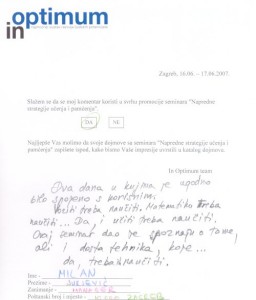 optimum
in
Zagreb, 16.06. – 17.06.2007
Slažem se da se moj komentar koristi u svrhu promocije seminara "Napredne
strategije učenja i pamćenja".
DA NE
Najljepše Vas molimo da svoju dojmove sa seminara "Napredne strategije učenja i
pamćenja" zapišete ispod, kako bismo Vaše impresije uvrstili u katalog dojmova.
In Optimum team
Ova dana u kojima je ugodno
bilo spojeno s korisnim.
Voziti treba naučiti. Matematiku treba
naučiti... Da, i učiti treba naučiti.
Ovaj seminar dao je spoznaju o tome,
ali i dosta tehnika, koje...
da, treba naučiti.
Ime - MILAN
Prezime -
Zanimanje - MANAGER
Poštanski broj i mjesto - ZAGREB